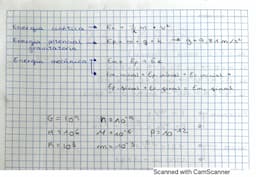 Energia cinética → Ec = 1/2 m · v²
Energia potencial gravitatoria → Ep = m · g · h → g = 9.81 m/s²
Energia mecánica → Em = Ep + Ec
Em, inicial = Ep, inicial + Ec, inicial =
Ep, final + Ec, final = Em, final
G = 10⁹ n = 10⁻⁹
M = 10⁶ μ = 10⁻⁶ p = 10⁻¹²
K = 10³ m = 10⁻³
Scanned with CamScanner